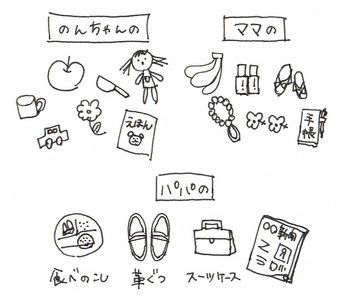 のんちゃんの
ママの
えほん
手帳
パパの
〇〇新聞
食べのこし
革ぐつ
スーツケース